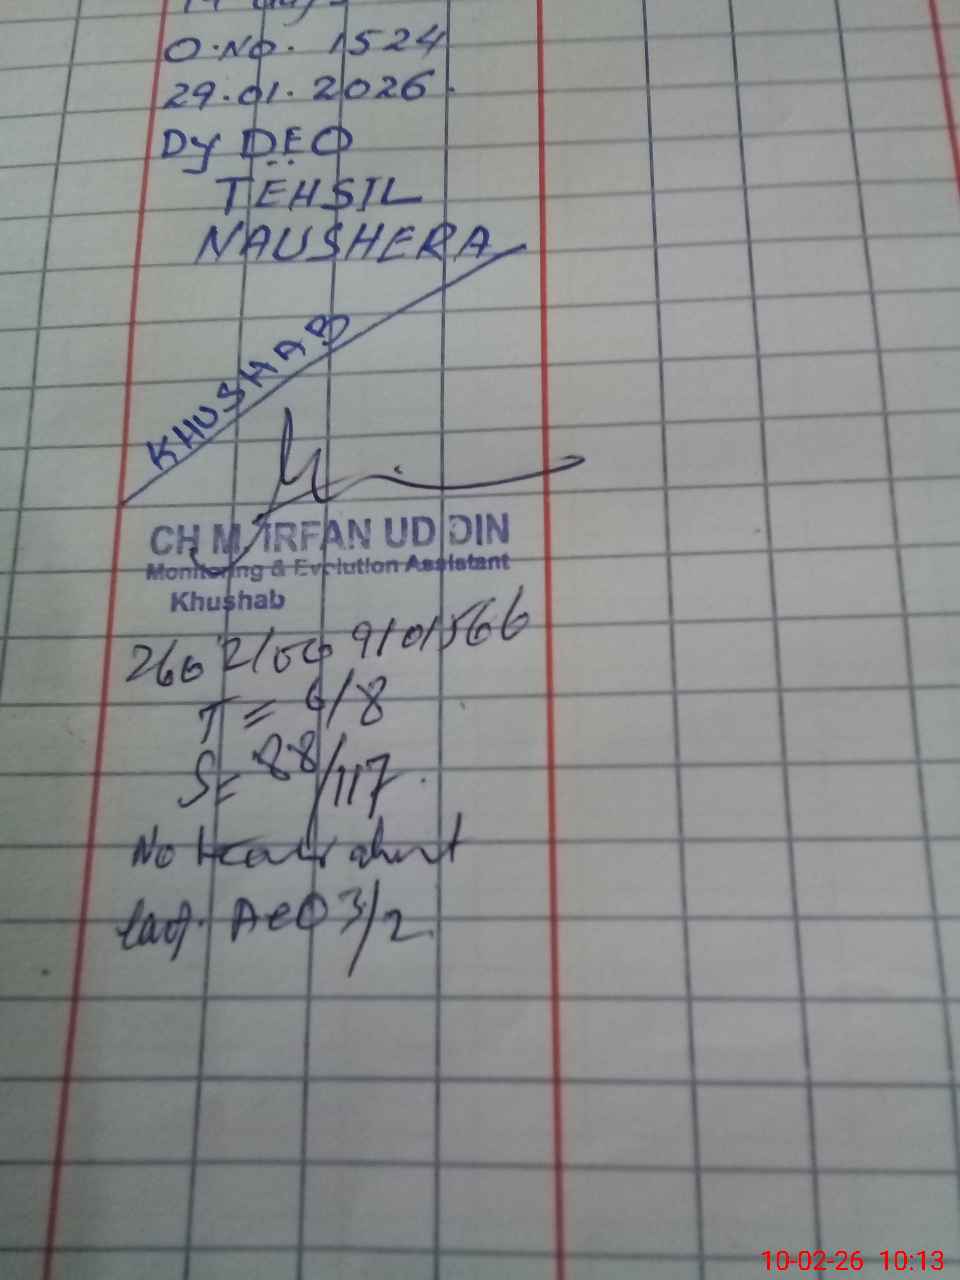 O.No. 1524
29.01.2026.
Dy DEO
TEHSIL
NAUSHERA
KHUSHAB
CH M. IRFAN UD DIN
Monitoring & Evolution Assistant
Khushab
9101566
T = 6/8
S = 88/117.
No
AEO 3/2
10-02-26 10:13